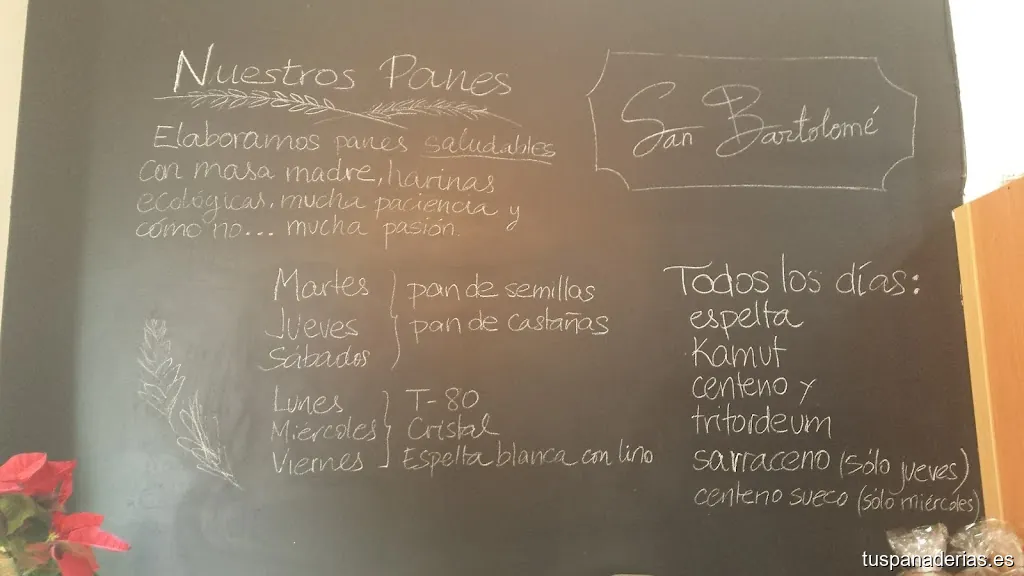 Nuestros Panes
Elaboramos panes saludables
con masa madre, harinas
ecológicas, mucha paciencia y
cómo no... mucha pasión.
San Bartolomé
Martes
Jueves
Sábados
pan de semillas
pan de castañas
Lunes
Miércoles
Viernes
T-80
Cristal
Espelta blanca con lino
Todos los días:
espelta
Kamut
centeno y
tritordeum
sarraceno (sólo jueves)
centeno sueco (sólo miércoles)
tuspanaderias.es